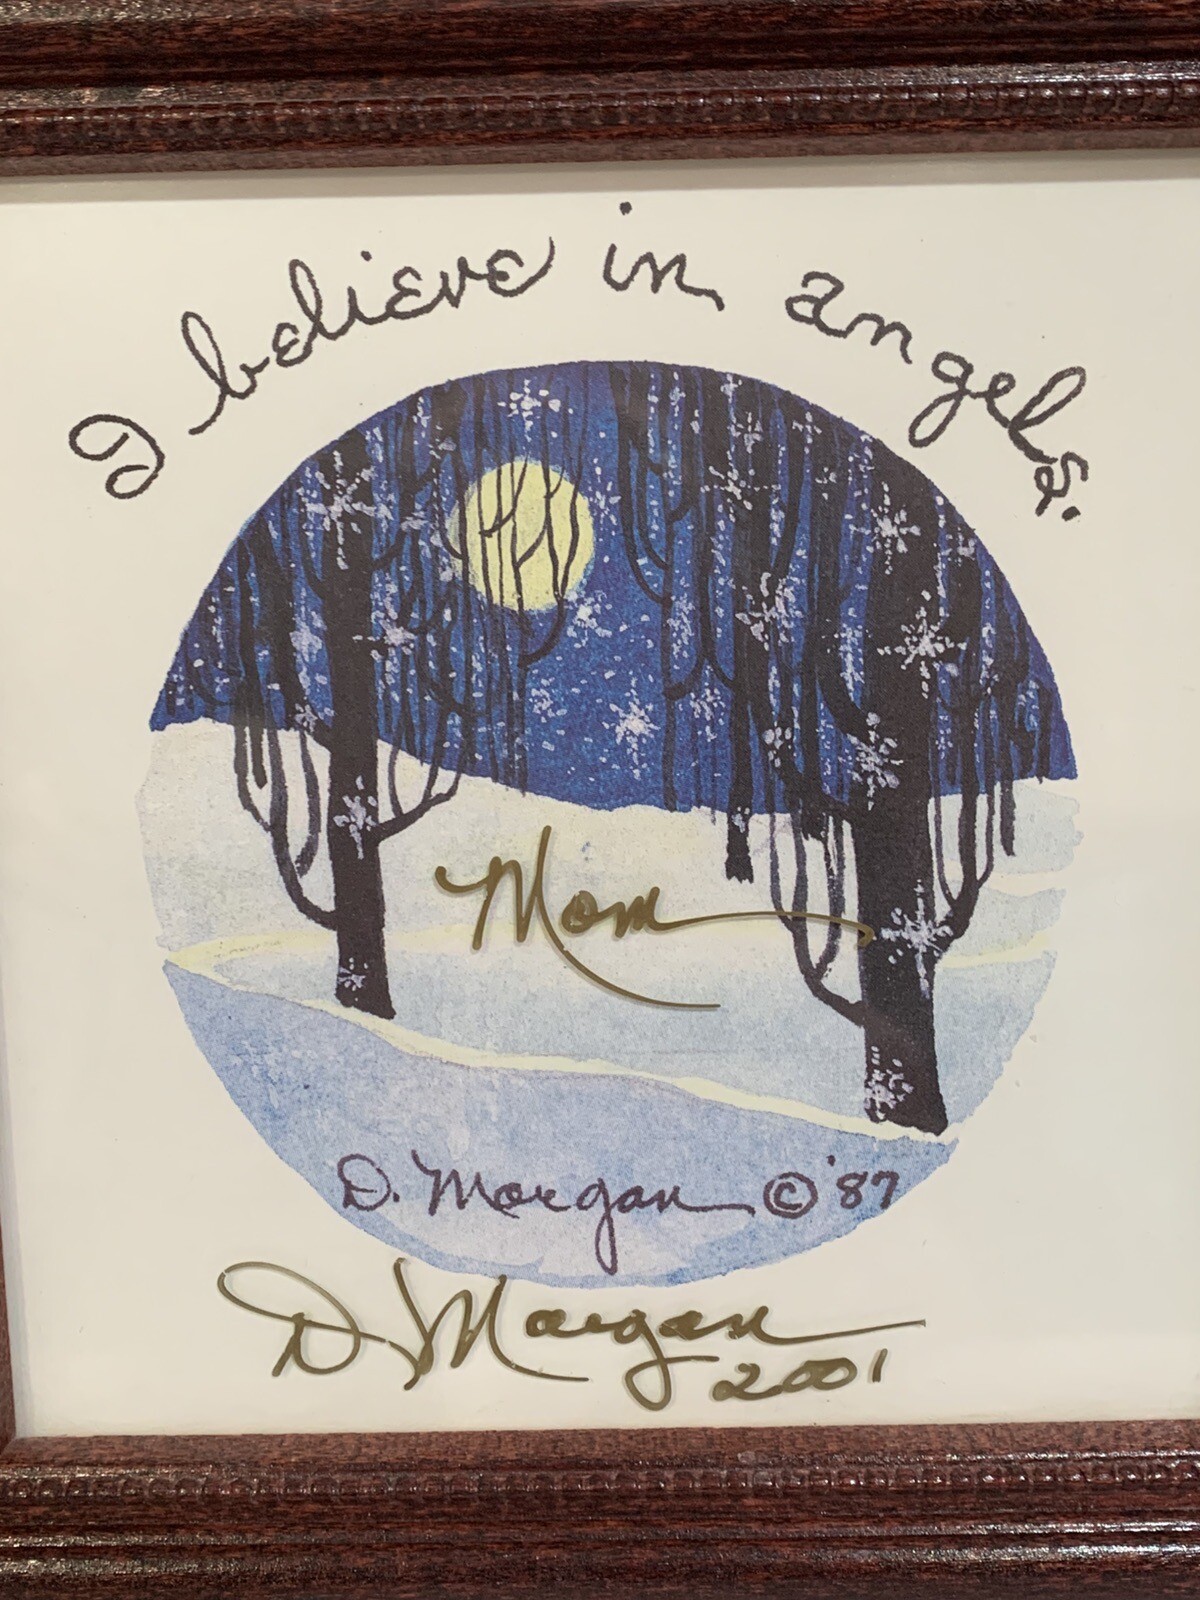 I believe in angels.
Mom
D. Morgan © '87
D. Morgan
2001